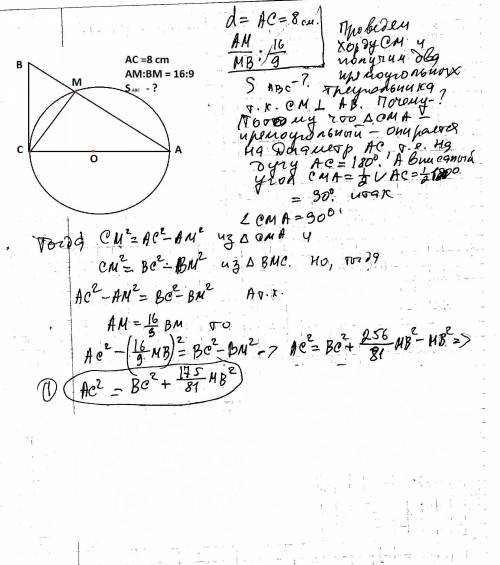 d = AC = 8 см.
AM/MB : 16/9
S ABC - ?
Проведем
хорду CM и
получим два
прямоугольных
треугольника
т.к. CM ⊥ AB. Почему-?
Потому что △CMA -
прямоугольный - опирается
на диаметр AC, т.е. на
дугу AC = 180°. А вписаный
угол CMA = 1/2 ∪ AC = 1/2 180°.
= 90°. итак
∠CMA = 90°!
B
M
C
O
A
AC =8 cm
AM:BM = 16:9
S ABC - ?
Тогда CM² = AC² - AM² из △CMA и
CM² = BC² - BM² из △BMC. Но, тогда
AC² - AM² = BC² - BM² А т.к.
AM = 16/9 BM то
AC² - (16/9 MB)² = BC² - BM² => AC² = BC² + 256/81 MB² - MB² =>
(1) AC² = BC² + 175/81 MB²